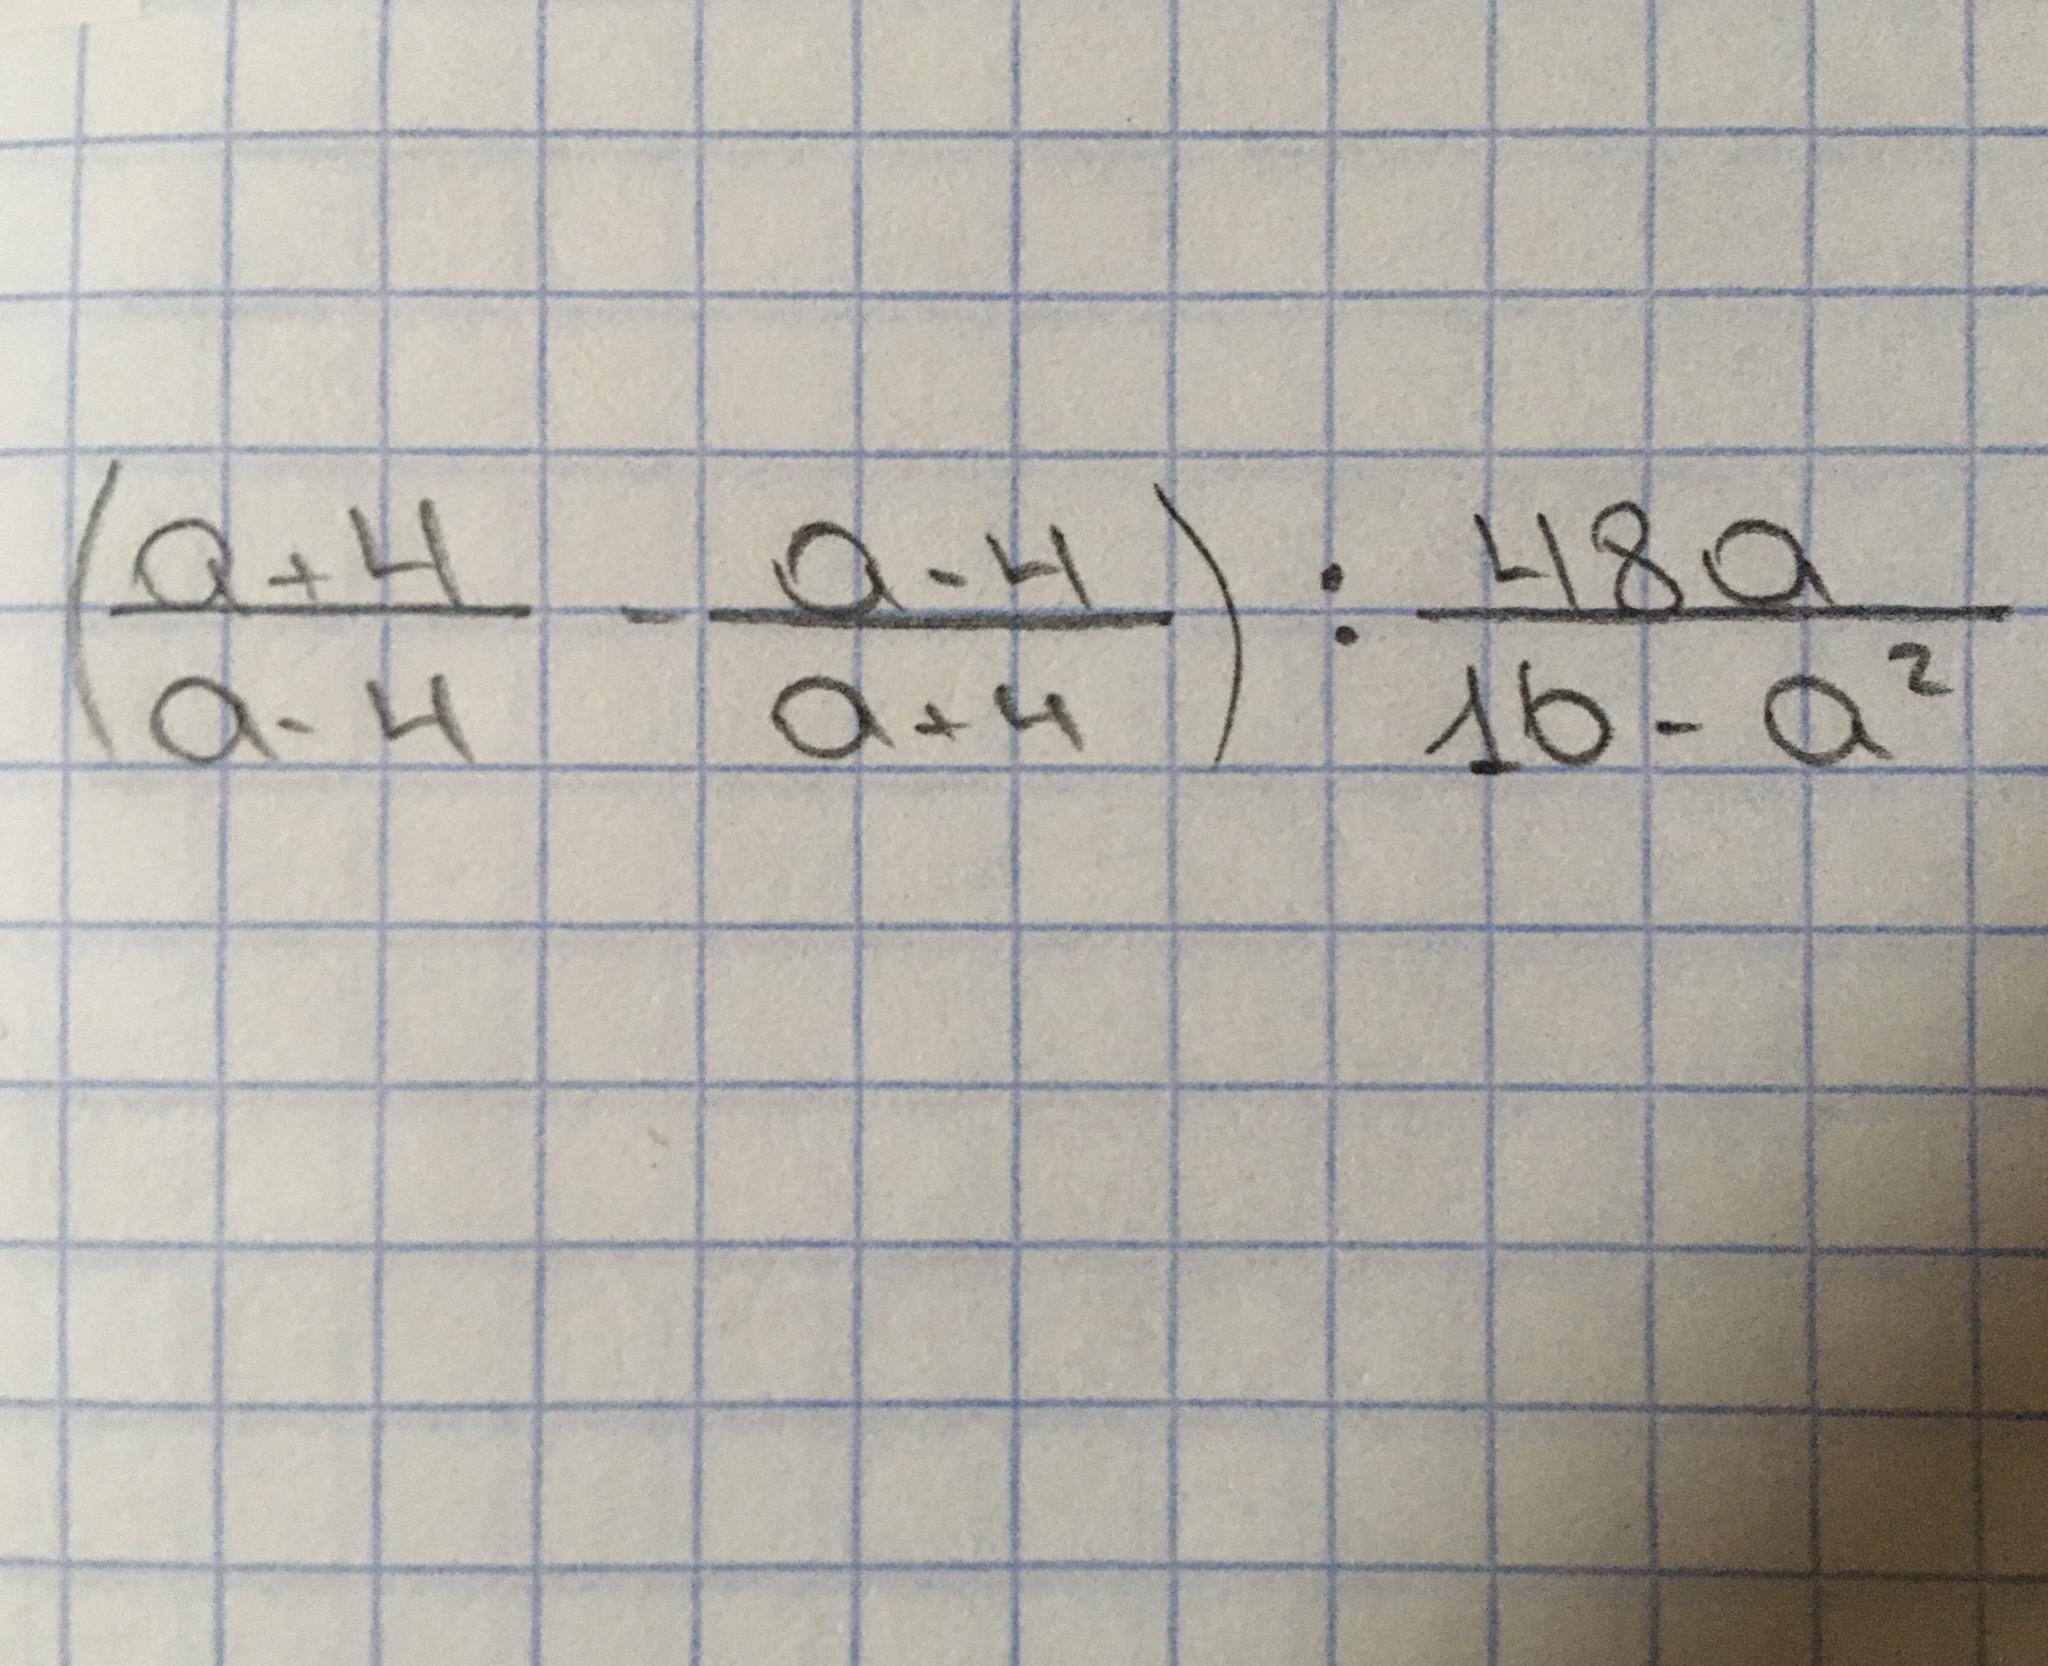 (a+4/a-4 - a-4/a+4) : 48a/16-a²